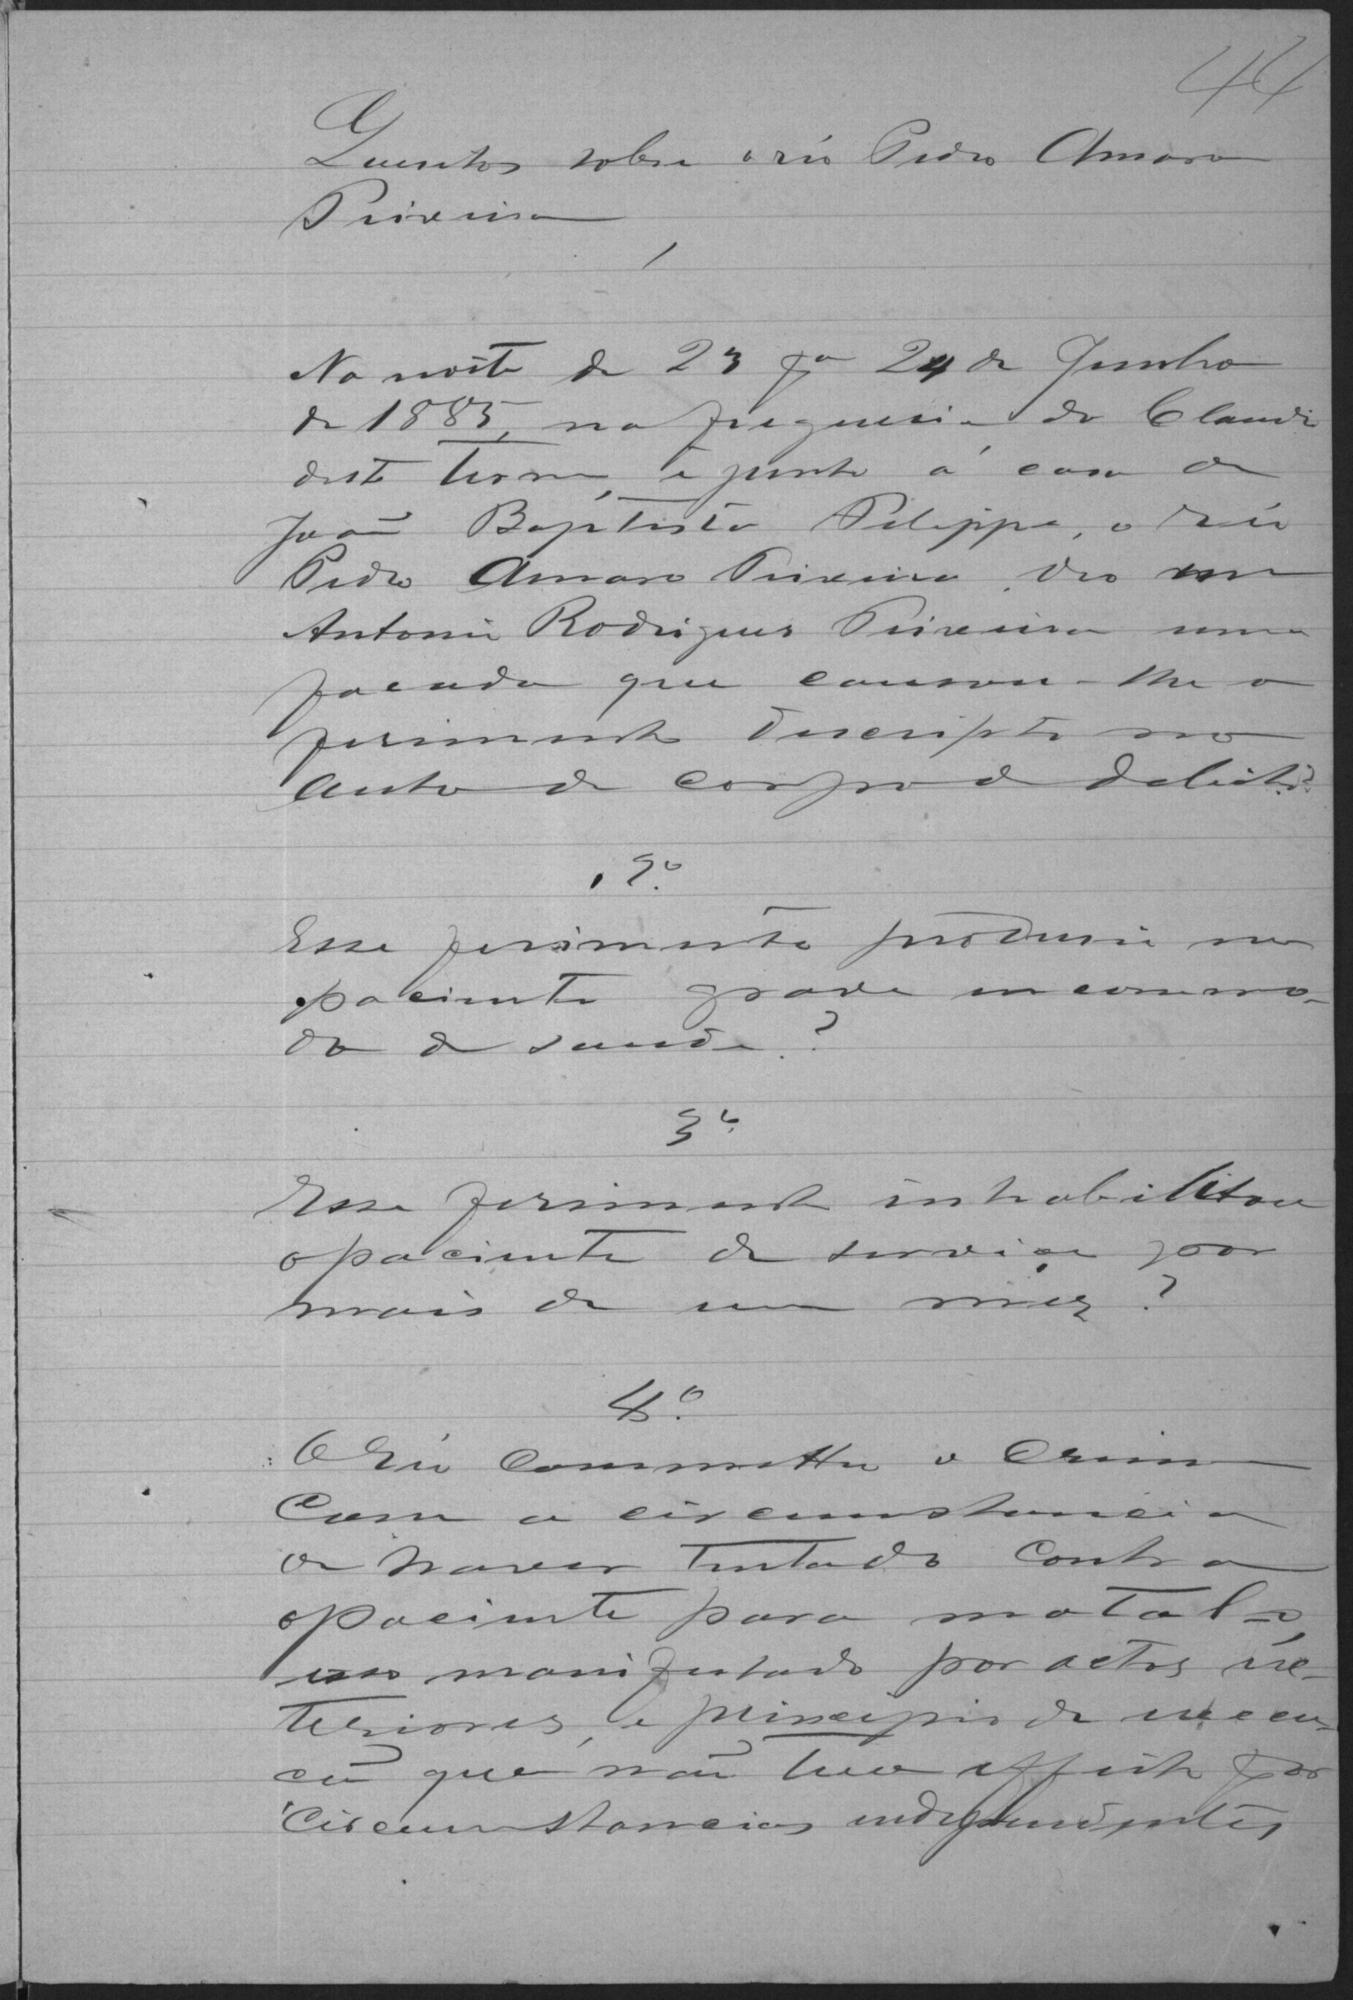 44
Quesitos sobre o réo Pedro Amaro
Teixeira
1
Na noite de 23 pa 24 de Junho
de 1885, na freguesia do Claudio
deste termo, e junto á casa de
João Baptista Felippe, o réo
Pedro Amaro Teixeira deo em
Antonio Rodrigues Teixeira uma
facada que causou-lhe o
ferimento descripto no
auto de corpo de delicto?
2º
Esse ferimento produsio no
paciente grave incommo-
do de saude?
3º
Esse ferimento inhabilitou
o paciente de serviço por
mais de um mez?
4º
O réo commetteu o crime
com a circumstancia
de haver tentado contra
o paciente para matal-o,
isso manifestado por actos ex-
teriores, e principio de execu-
cão que não teve effeito por
circumstancias independentes